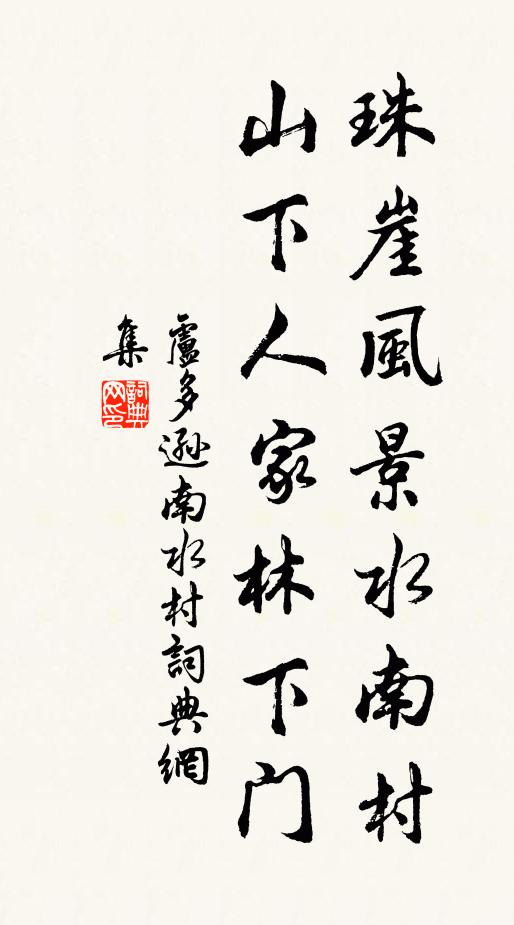 珠崖風景水南村
山下人家林下门
盧多遜南水村詞典網
集
詞典
网印